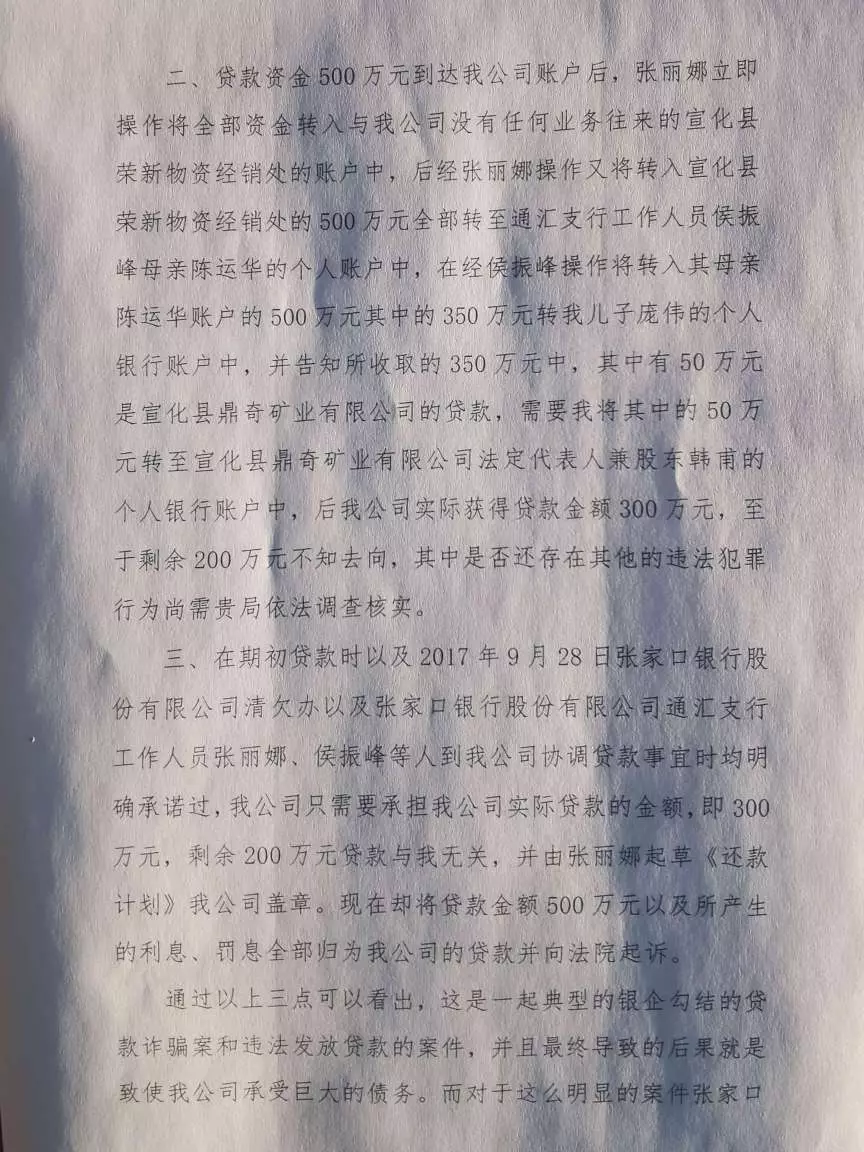 二、贷款资金 500 万元到达我公司账户后，张丽娜立即
操作将全部资金转入与我公司没有任何业务往来的宣化县
荣新物资经销处的账户中，后经张丽娜操作又将转入宣化县
荣新物资经销处的 500 万元全部转至通汇支行工作人员侯振
峰母亲陈运华的个人账户中，在经侯振峰操作将转入其母亲
陈运华账户的 500 万元其中的 350 万元转我儿子庞伟的个人
银行账户中，并告知所收取的 350 万元中，其中有 50 万元
是宣化县鼎奇矿业有限公司的贷款，需要我将其中的 50 万
元转至宣化县鼎奇矿业有限公司法定代表人兼股东韩甫的
个人银行账户中，后我公司实际获得贷款金额 300 万元，至
于剩余 200 万元不知去向，其中是否还存在其他的违法犯罪
行为尚需贵局依法调查核实。
三、在期初贷款时以及 2017 年 9 月 28 日张家口银行股
份有限公司清欠办以及张家口银行股份有限公司通汇支行
工作人员张丽娜、侯振峰等人到我公司协调贷款事宜时均明
确承诺过，我公司只需要承担我公司实际贷款的金额，即 300
万元，剩余 200 万元贷款与我无关，并由张丽娜起草《还款
计划》我公司盖章。现在却将贷款金额 500 万元以及所产生
的利息、罚息全部归为我公司的贷款并向法院起诉。
通过以上三点可以看出，这是一起典型的银企勾结的贷
款诈骗案和违法发放贷款的案件，并且最终导致的后果就是
致使我公司承受巨大的债务。而对于这么明显的案件张家口